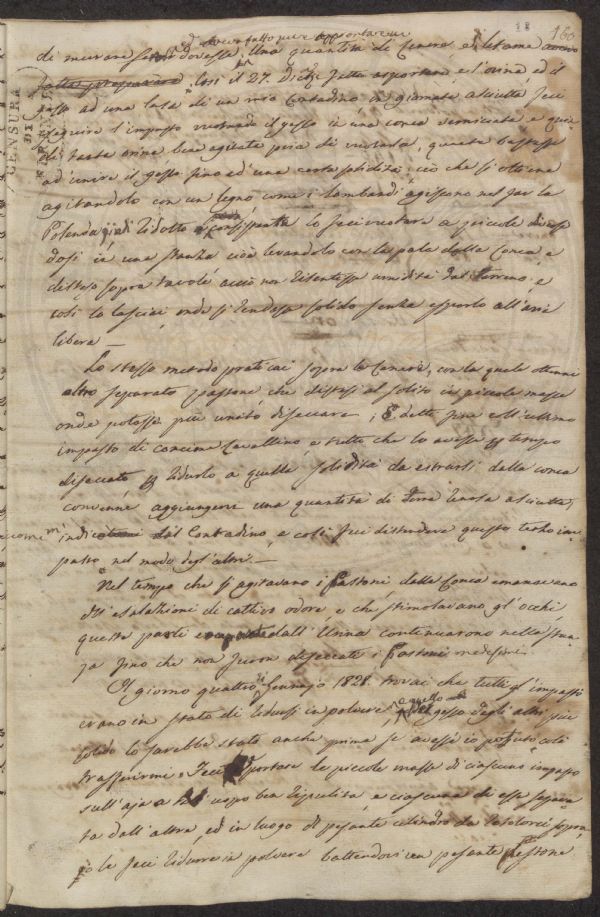 160
ed avea fatto pure apportarvi
di murare dovesse. Una quantità di Cenere, ed letame
fatto preparare. Così il 27. Dicbr. fatta asportare, e l'orina, ed il
gesso ad una Casa di un mio Contadino in giornata asciutta feci
eseguire l'impasto vuotando il gesso in una conca verniciata e quin
di tanta orina ben agitata pria di vuotarla, quanta bastasse
ad unire il gesso fino ad una certa solidità: ciò che si ottenne
agitandolo con un legno come i Lombardi agiscono nel far la
Polenda, e di ridotto a consistenza lo feci vuotare a piccole
dosi in una stanza cioè levandolo con la pala dalla Conca, e
disteso sopra tavole acciò non risentisse umidità dal terreno, e
così lo lasciai onde si rendesse solido senza esporlo all'aria
libera —
Lo stesso metodo praticai sopra la Cenere, con la quale ottenni
altro separato pastone che distesi al solito in piccole masse
onde potesse più unito diseccare; E dette fine coll'ultimo
impasto di concime Cavallino, e sicché che lo avesse tempo
diseccato ridurlo a quella solidità da estrarsi dalla conca
convenne aggiungere una quantità di terra renosa asciutta,
come indicatomi dal Contadino, e così feci distendere questo terzo im
pasto nel modo degl'altri —
Nel tempo che si agitavano i Pastoni dalla Conca emanavano
dell'esalazioni di cattivo odore, e che stimolavano gl'occhi,
queste parti dall'Urina continuarono nella stan
za fino che non furon diseccati i Pastoni medesimi.
Il giorno quattro di Gennajo 1828. trovai che tutti gl'impasti
erano in stato di ridursi in polvere, gesso degli altri più
solido lo sarebbe stato anche prima se avessi io potuto colà
trasferirmi. Feci portare le piccole masse di ciascuno impasto
sull'aja a tal uopo ben ripulita, e ciascuna di esse separa
ta dall'altra, ed in luogo di pesante cilindro da sopra
le feci ridurre in polvere battendovi con pesante Pestone
CENSURA
DI